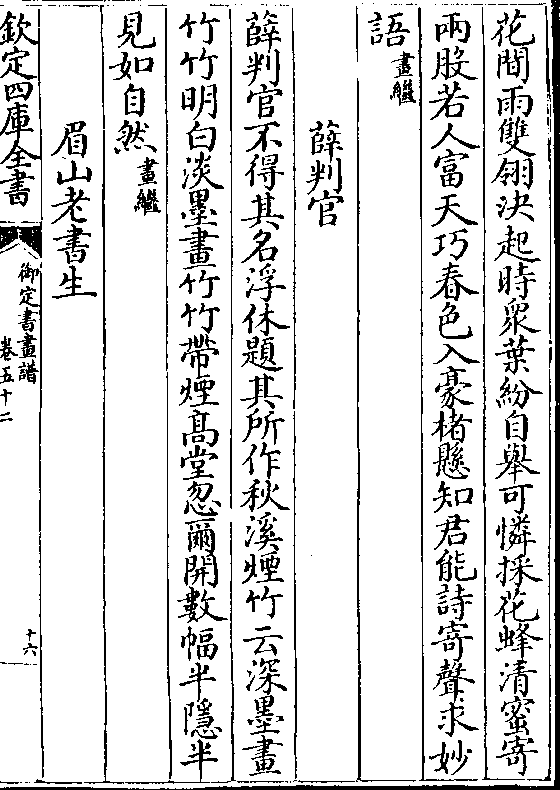 花間雨雙翎決起時衆葉紛自舉可憐採花蜂清蜜寄
兩股若人富天巧春色入豪楮懸知君能詩寄聲求妙
語畫繼
薛判官
薛判官不得其名浮休題其所作秋溪煙竹云深墨畫
竹竹明白淡墨畫竹竹帶煙髙堂忽爾開數幅半隱半
見如自然畫繼
眉山老書生
欽定四庫全書
御定書畫譜
卷五十二
十六